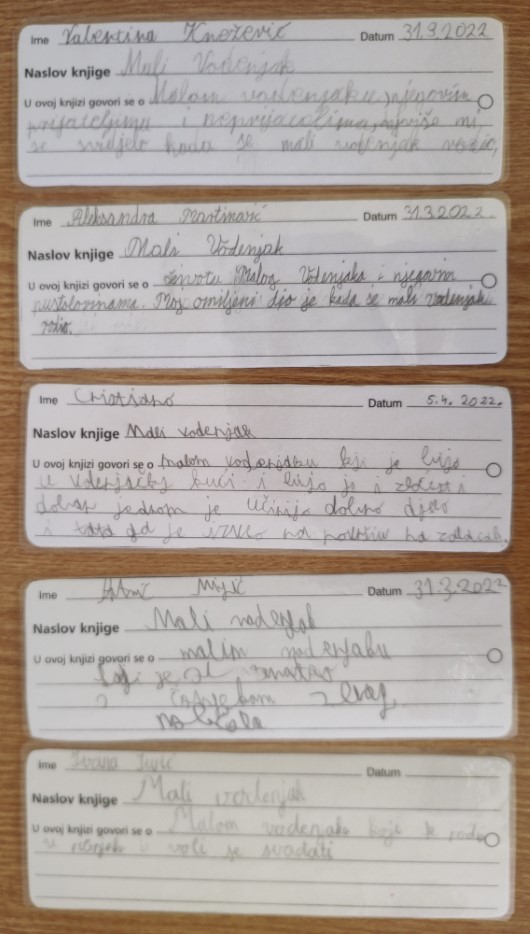 Ime Valentina Knežević Datum 31.3.2022
Naslov knjige Mali Vodenjak
U ovoj knjizi govori se o Malom vodenjaku, njegovim
prijateljima i neprijateljima, najviše mi
se svidjelo kada se mali vodenjak vozio,
Ime Aleksandra Martinović Datum 31.3.2022.
Naslov knjige Mali Vodenjak
U ovoj knjizi govori se o životu Malog Vodenjaka i njegovim
pustolovinama. Moj omiljeni dio je kada se mali vodenjak
rodio.
Ime Cristiano Datum 5.4. 2022.
Naslov knjige Mali vodenjak
U ovoj knjizi govori se o malom vodenjaku koji je bijo
u vodenjačkoj kući i bijo je i zločest i
dobar jednom je učinijo dobro djelo
i tata ga je na površinu na
Ime Datum 31.3.2022
Naslov knjige Mali vodenjak
U ovoj knjizi govori se o malim vodenjaku
koji je
Ime Ivana Datum
Naslov knjige Mali vodenjak
U ovoj knjizi govori se o Malom vodenjaku koji
u i voli se svađati